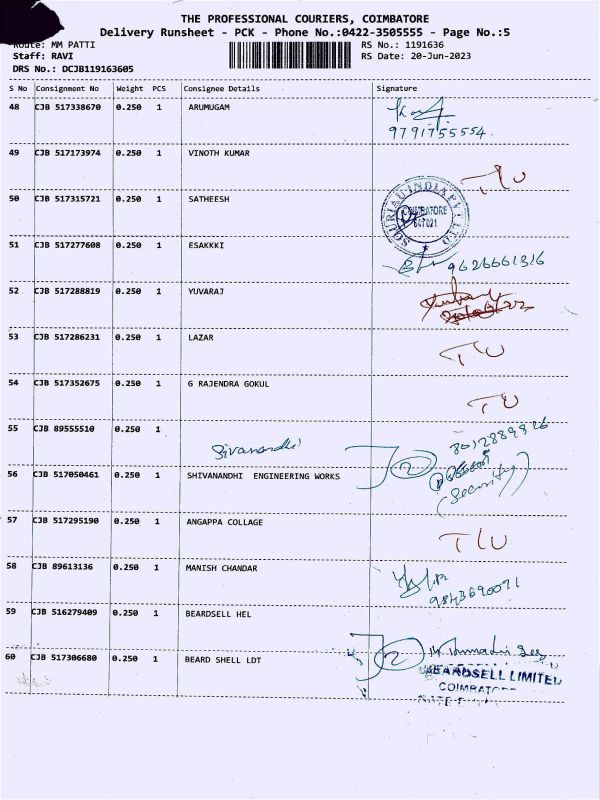 THE PROFESSIONAL COURIERS, COIMBATORE
Delivery Runsheet - PCK - Phone No.:0422-3505555 - Page No.:5
Route: MM PATTI
RS No.: 1191636
Staff: RAVI
RS Date: 20-Jun-2023
DRS No.: DCJB119163605
S No Consignment No Weight PCS Consignee Details Signature
48 CJB 517338670 0.250 1 ARUMUGAM
9791755554.
49 CJB 517173974 0.250 1 VINOTH KUMAR
T/U
50 CJB 517315721 0.250 1 SATHEESH
SOURIAU INDIA PVT LTD
COIMBATORE
641021
51 CJB 517277608 0.250 1 ESAKKKI
9626661316
52 CJB 517288819 0.250 1 YUVARAJ
53 CJB 517286231 0.250 1 LAZAR
TU
54 CJB 517352675 0.250 1 G RAJENDRA GOKUL
TU
55 CJB 89555510 0.250 1
Sivanandhi
8012889826
56 CJB 517050461 0.250 1 SHIVANANDHI ENGINEERING WORKS
2
(Security)
57 CJB 517295190 0.250 1 ANGAPPA COLLAGE
T/U
58 CJB 89613136 0.250 1 MANISH CHANDAR
9843690071
59 CJB 516279409 0.250 1 BEARDSELL HEL
60 CJB 517306680 0.250 1 BEARD SHELL LDT
2
BEARDSELL LIMITED